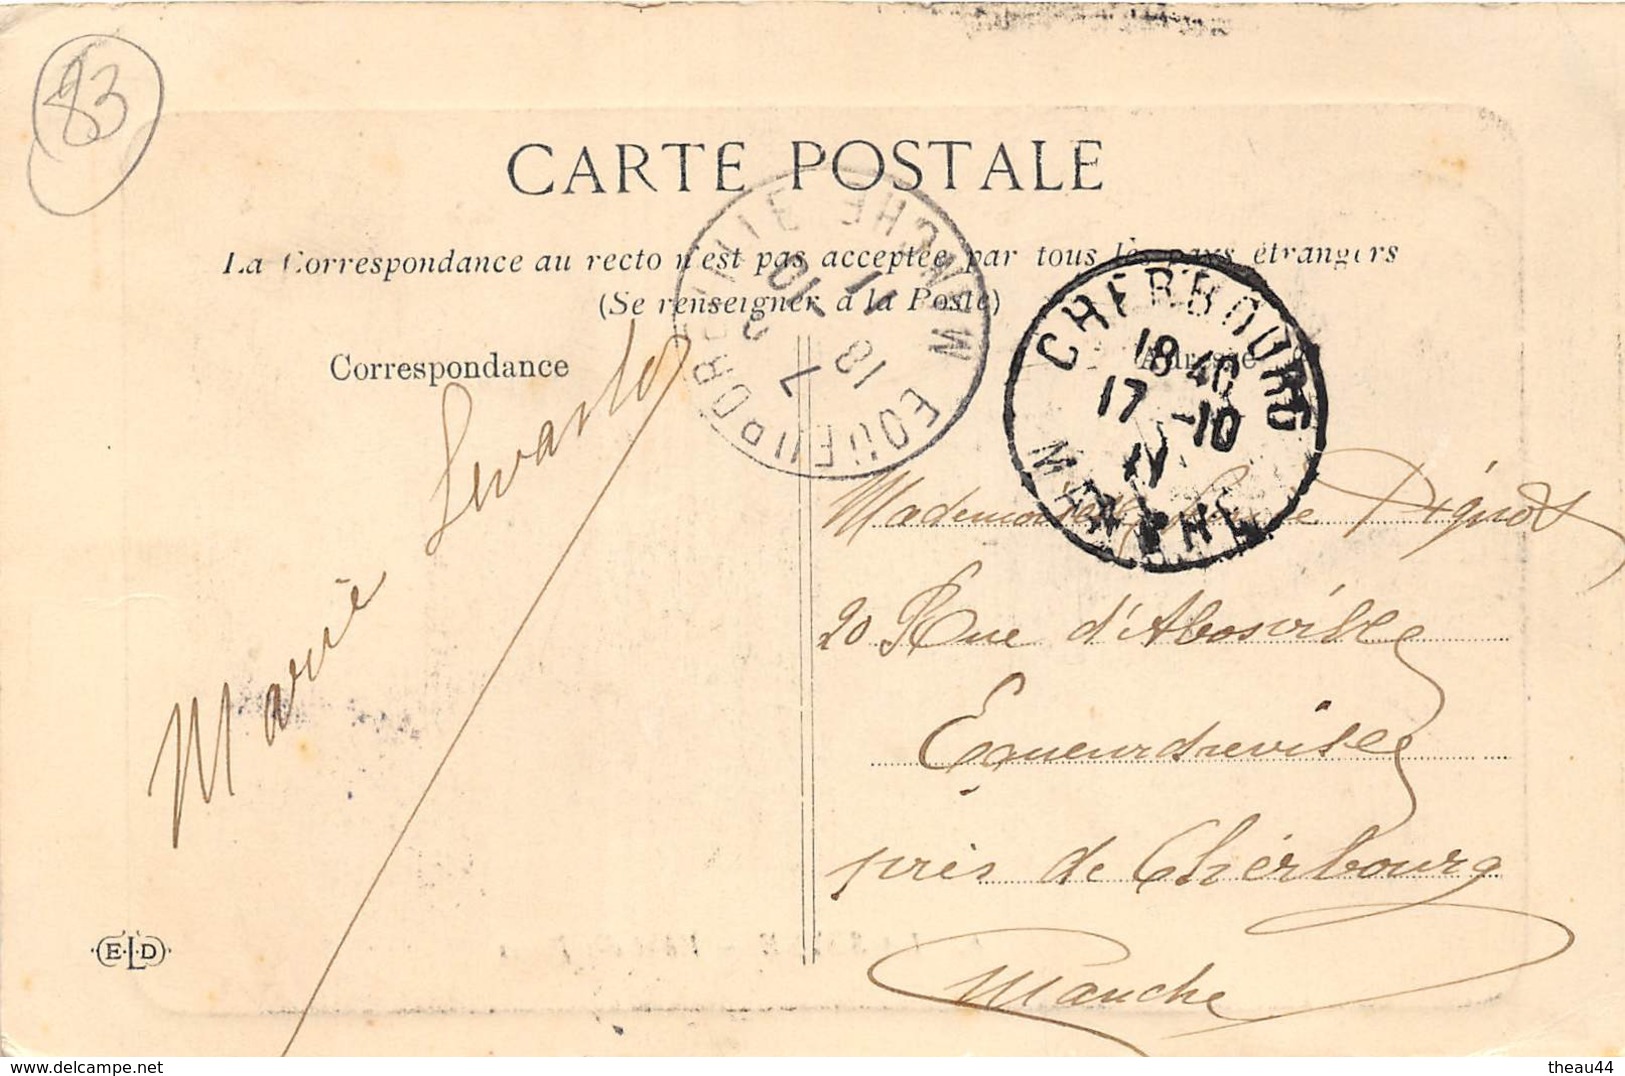 83
CARTE POSTALE
La Correspondance au recto n'est pas acceptée par tous les pays étrangers
(Se renseigner à la Poste)
Correspondance
Adresse
EQUEURDREVILLE MANCHE
7 18
10 11
CHERBOURG
18 40
17 -10
11
MANCHE
Marie Levasto
Mademoiselle Pignot
20 Rue d'Abosville
Equeurdreville
près de Cherbourg
Manche
E.L.D
theau44